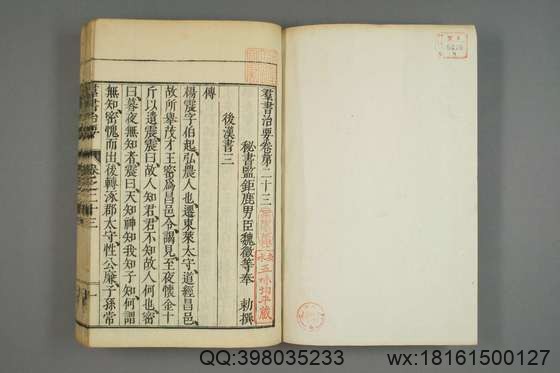 羣書治要卷第二十三
秘書監鉅鹿男臣魏徵等奉　勅撰
後漢書三
傳
楊震字伯起弘農人也遷東萊太守道經昌邑
故所舉茂才王密爲昌邑令謁見至夜懷金十
斤以遺震震曰故人知君君不知故人何也密
曰暮夜無知者震曰天知神知我知子知何謂
無知密愧而出後轉涿郡太守性公廉子孫常
羣書治要
卷之二十三
一
QQ:398035233
wx:18161500127